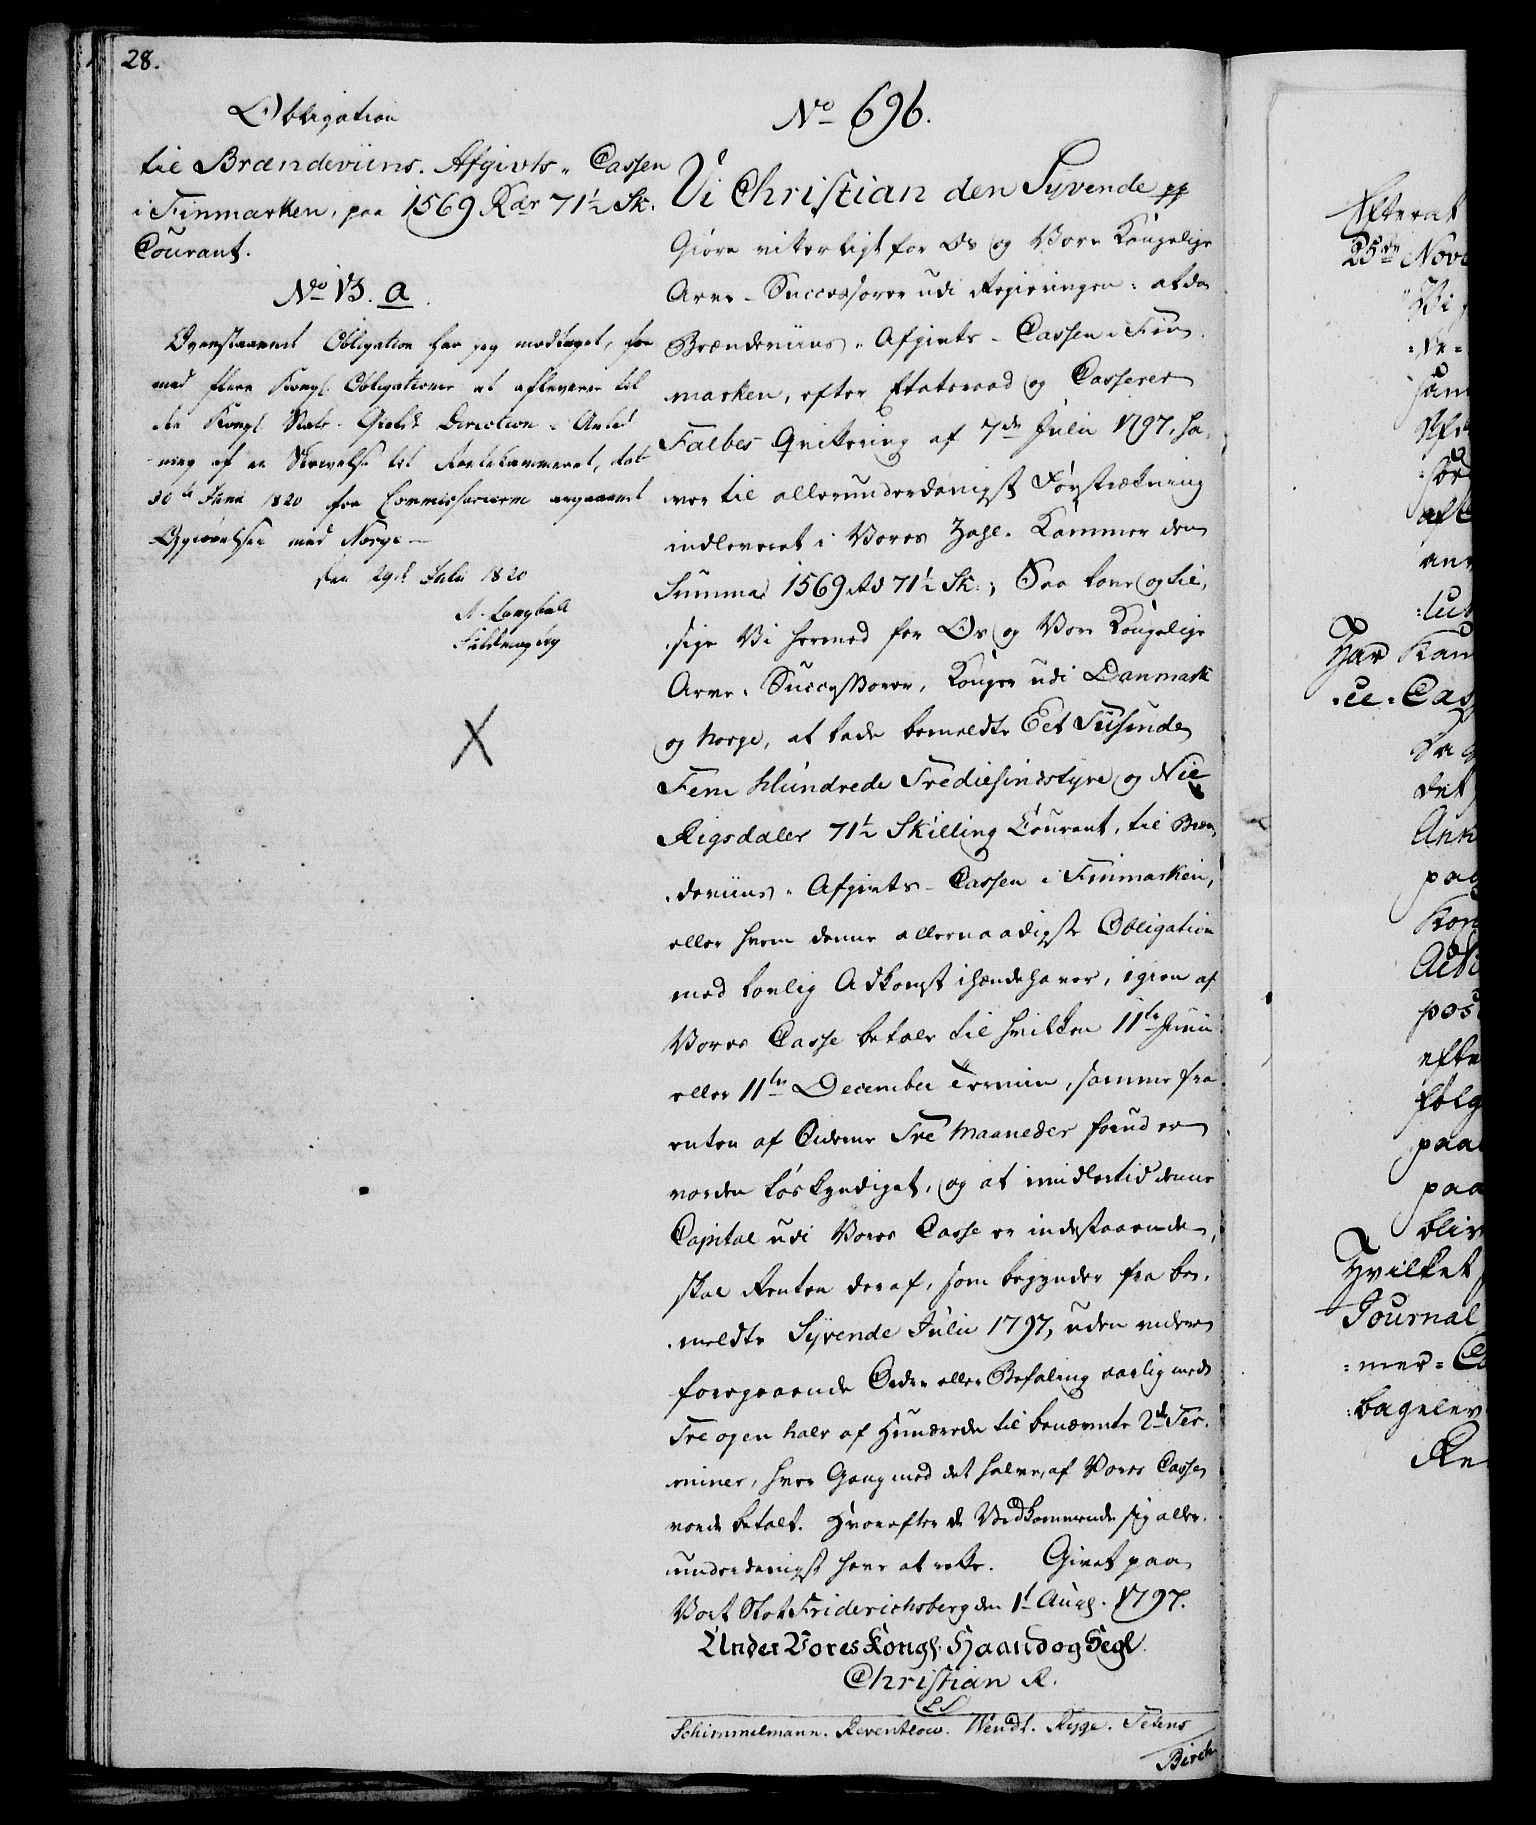 28.
Obligation
til Brændeviins-Afgivts-Cassen
i Finmarken, paa 1569 Rdr 71½ Sk:
Courant.
No 13. a
Ovenstaaende Obligation har jeg modtaget, for
med flere Kongl. Obligationer at aflevere til
den Kongl. Stats-Gields Direction i Anled
ning af en Skrivelse til Rentekammeret, dat
30te Juni 1820 fra Commissarierne angaaende
Opgiørelsen med Norge
den 29de Julii 1820
Fuldmægtig
X
No 696.
Vi Christian den Syvende pp
Giøre vitterligt for Os og Vore Kongelige
Arve-Successorer udi Regieringen: at da
Brændeviins-Afgivts-Cassen i Fin-
marken, efter Etatsraad og Casserer
Falbes Qvittering af 7de Julii 1797, ha-
ver til allerunderdanigst Forstrækning
indleveret i Vores Zahl-Kammer den
Summa 1569 Rd 71½ Sk:; Saa love og til-
sige Vi hermed for Os og Vore Kongelige
Arve-Successorer, Konger udi Danmark
og Norge, at lade bemeldte Eet Tusinde
Fem Hundrede Trediesindstyve og Nie
Rigsdaler 71½ Skilling Courant, til Bræn-
deviins-Afgivts-Cassen i Finmarken,
eller hvem denne allernaadigste Obligation
med lovlig Adkomst ihændehaver, igien af
Vores Casse betale til hvilken 11te Junii
eller 11te December Termin, samme fra
enten af Siderne Tre Maaneder forud er
vorden løskyndiget, og at imidlertid denne
Capital udi Vores Casse er indestaaende,
skal Renten deraf, som begynder fra be-
meldte Syvende Julii 1797, uden videre
foregaaende Ordre eller Befaling aarlig med
Tre og en halv af Hundrede til benævnte 2de Ter-
miner, hver Gang med det halve, af Vores Casse
vorde betalt. Hvorefter de Vedkommende sig aller-
underdanigst have at rette. Givet paa
Vort Slot Friderichsberg den 1te Aug. 1797.
Under Vores Kongl. Haand og Segl.
Christian R.
LS
Schimmelmann. Reventlow. Wendt. Rygge. Tetens
Birch
Efterat
25de Nove
Vi
Har Kam
Cas
det
Ank
paa
efte
følg
paa
paa
bliv
Hvilket
Journal
=mer=Ca
bagelev
Re